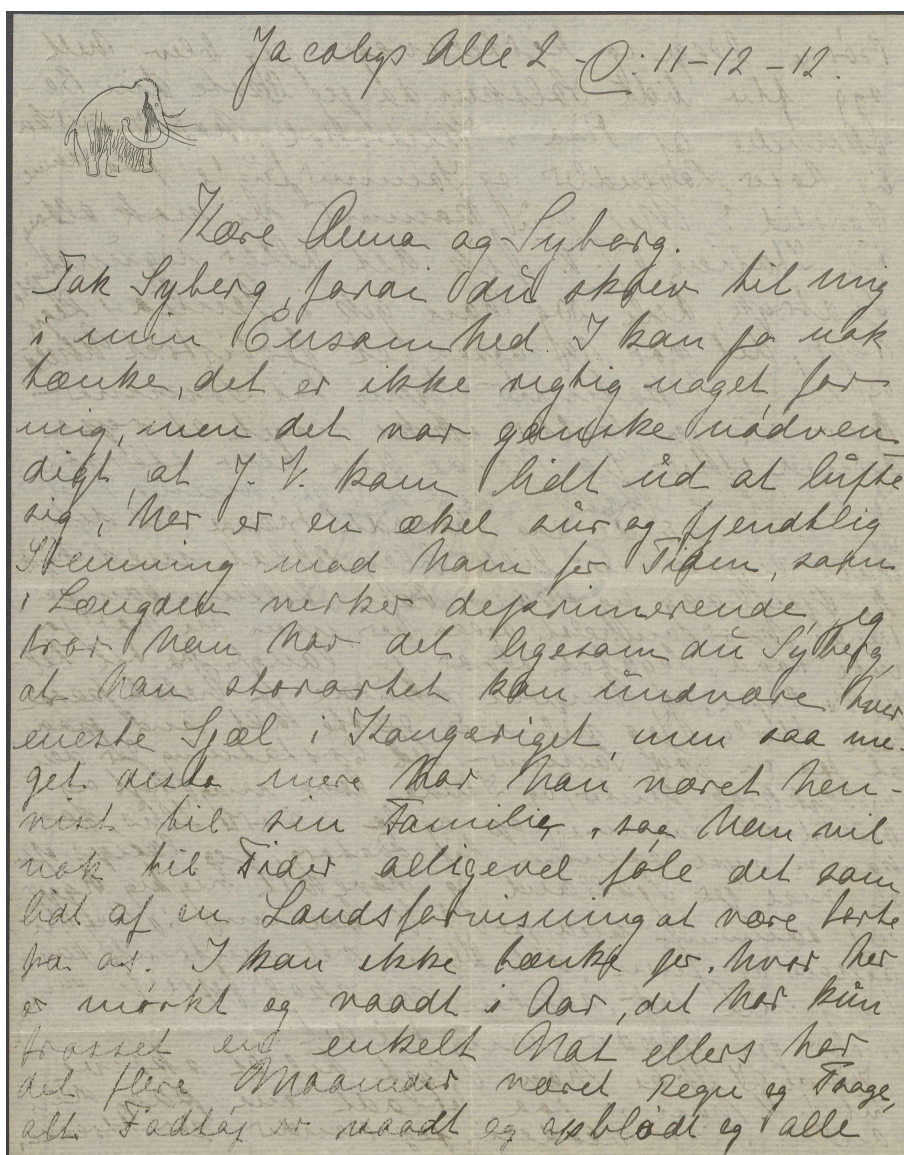 Jacobys Alle 2 - D: 11-12-12.
Kære Anna og Syberg.
Tak Syberg, fordi du skrev til mig
i min Ensomhed. I kan jo nok
tænke, det er ikke rigtig noget for
mig, men det var ganske nødven
digt at J. V. kom lidt ud at lufte
sig, her er en ækel sur og fjendtlig
Stemning mod ham for Tiden, som
i Længden virker deprimerende, jeg
tror han har det ligesom du Syberg,
at han storartet kan undvære hver
eneste Sjæl i Kongeriget, men saa me-
get desto mere har han været hen-
vist til sin Familie, saa han vil
nok til Tider alligevel føle det som
lidt af en Landsforvisning at være borte
fra os. I kan ikke tænke jer, hvor her
er mørkt og vaadt i Aar, det har kun
frosset en enkelt Nat ellers har
det flere Maaneder været Regn og Taage,
alt Fodtøj er vaadt og opblødt og alle